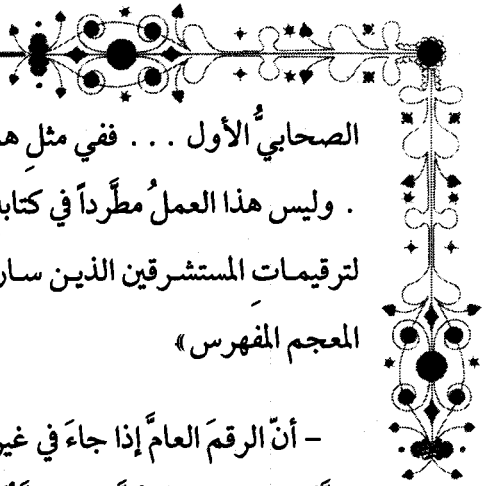 الصحابيُّ الأول . . . ففي مثلِ
. وليس هذا العملُ مطَّرداً في
لترقيمـاتِ المستشـرقين الذيـن
المعجم المفهرس »
– أنّ الرقمَ العامَّ إذا جاءَ في